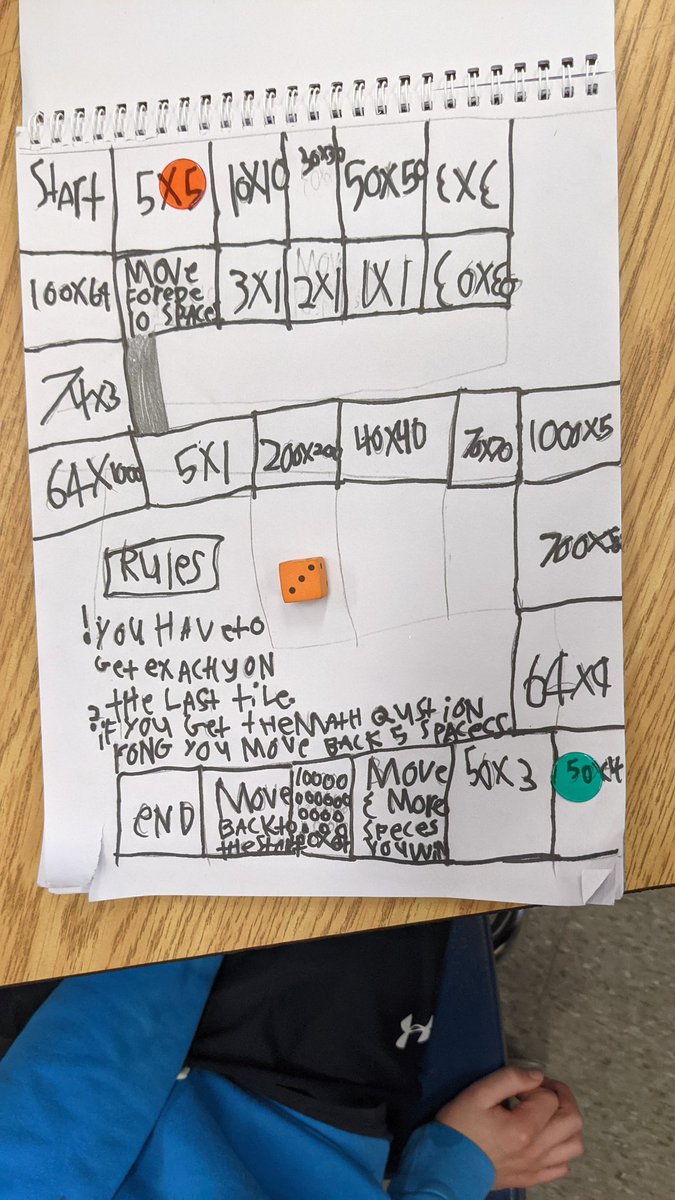 Start
5X5
10X10
30X30
50X50
3X3
100X64
Move
Forepe
10 Spaces
3X1
2X1
1X1
30X30
74X3
64X1000
5X1
200X200
40X40
70X70
1000X5
700X5
Rules
64X9
! YOU HAVE to
Get exACHy ON
the LAST tile.
2. iF YOU Get tHe MAtH QUStiON
rONG YOU MOVE BACK 5 SPACESS
eND
MOVe
BACK to
the StArt
10000
000000
0000
Move
& More
SPeCeS
YOU WiN
50X3
50X14